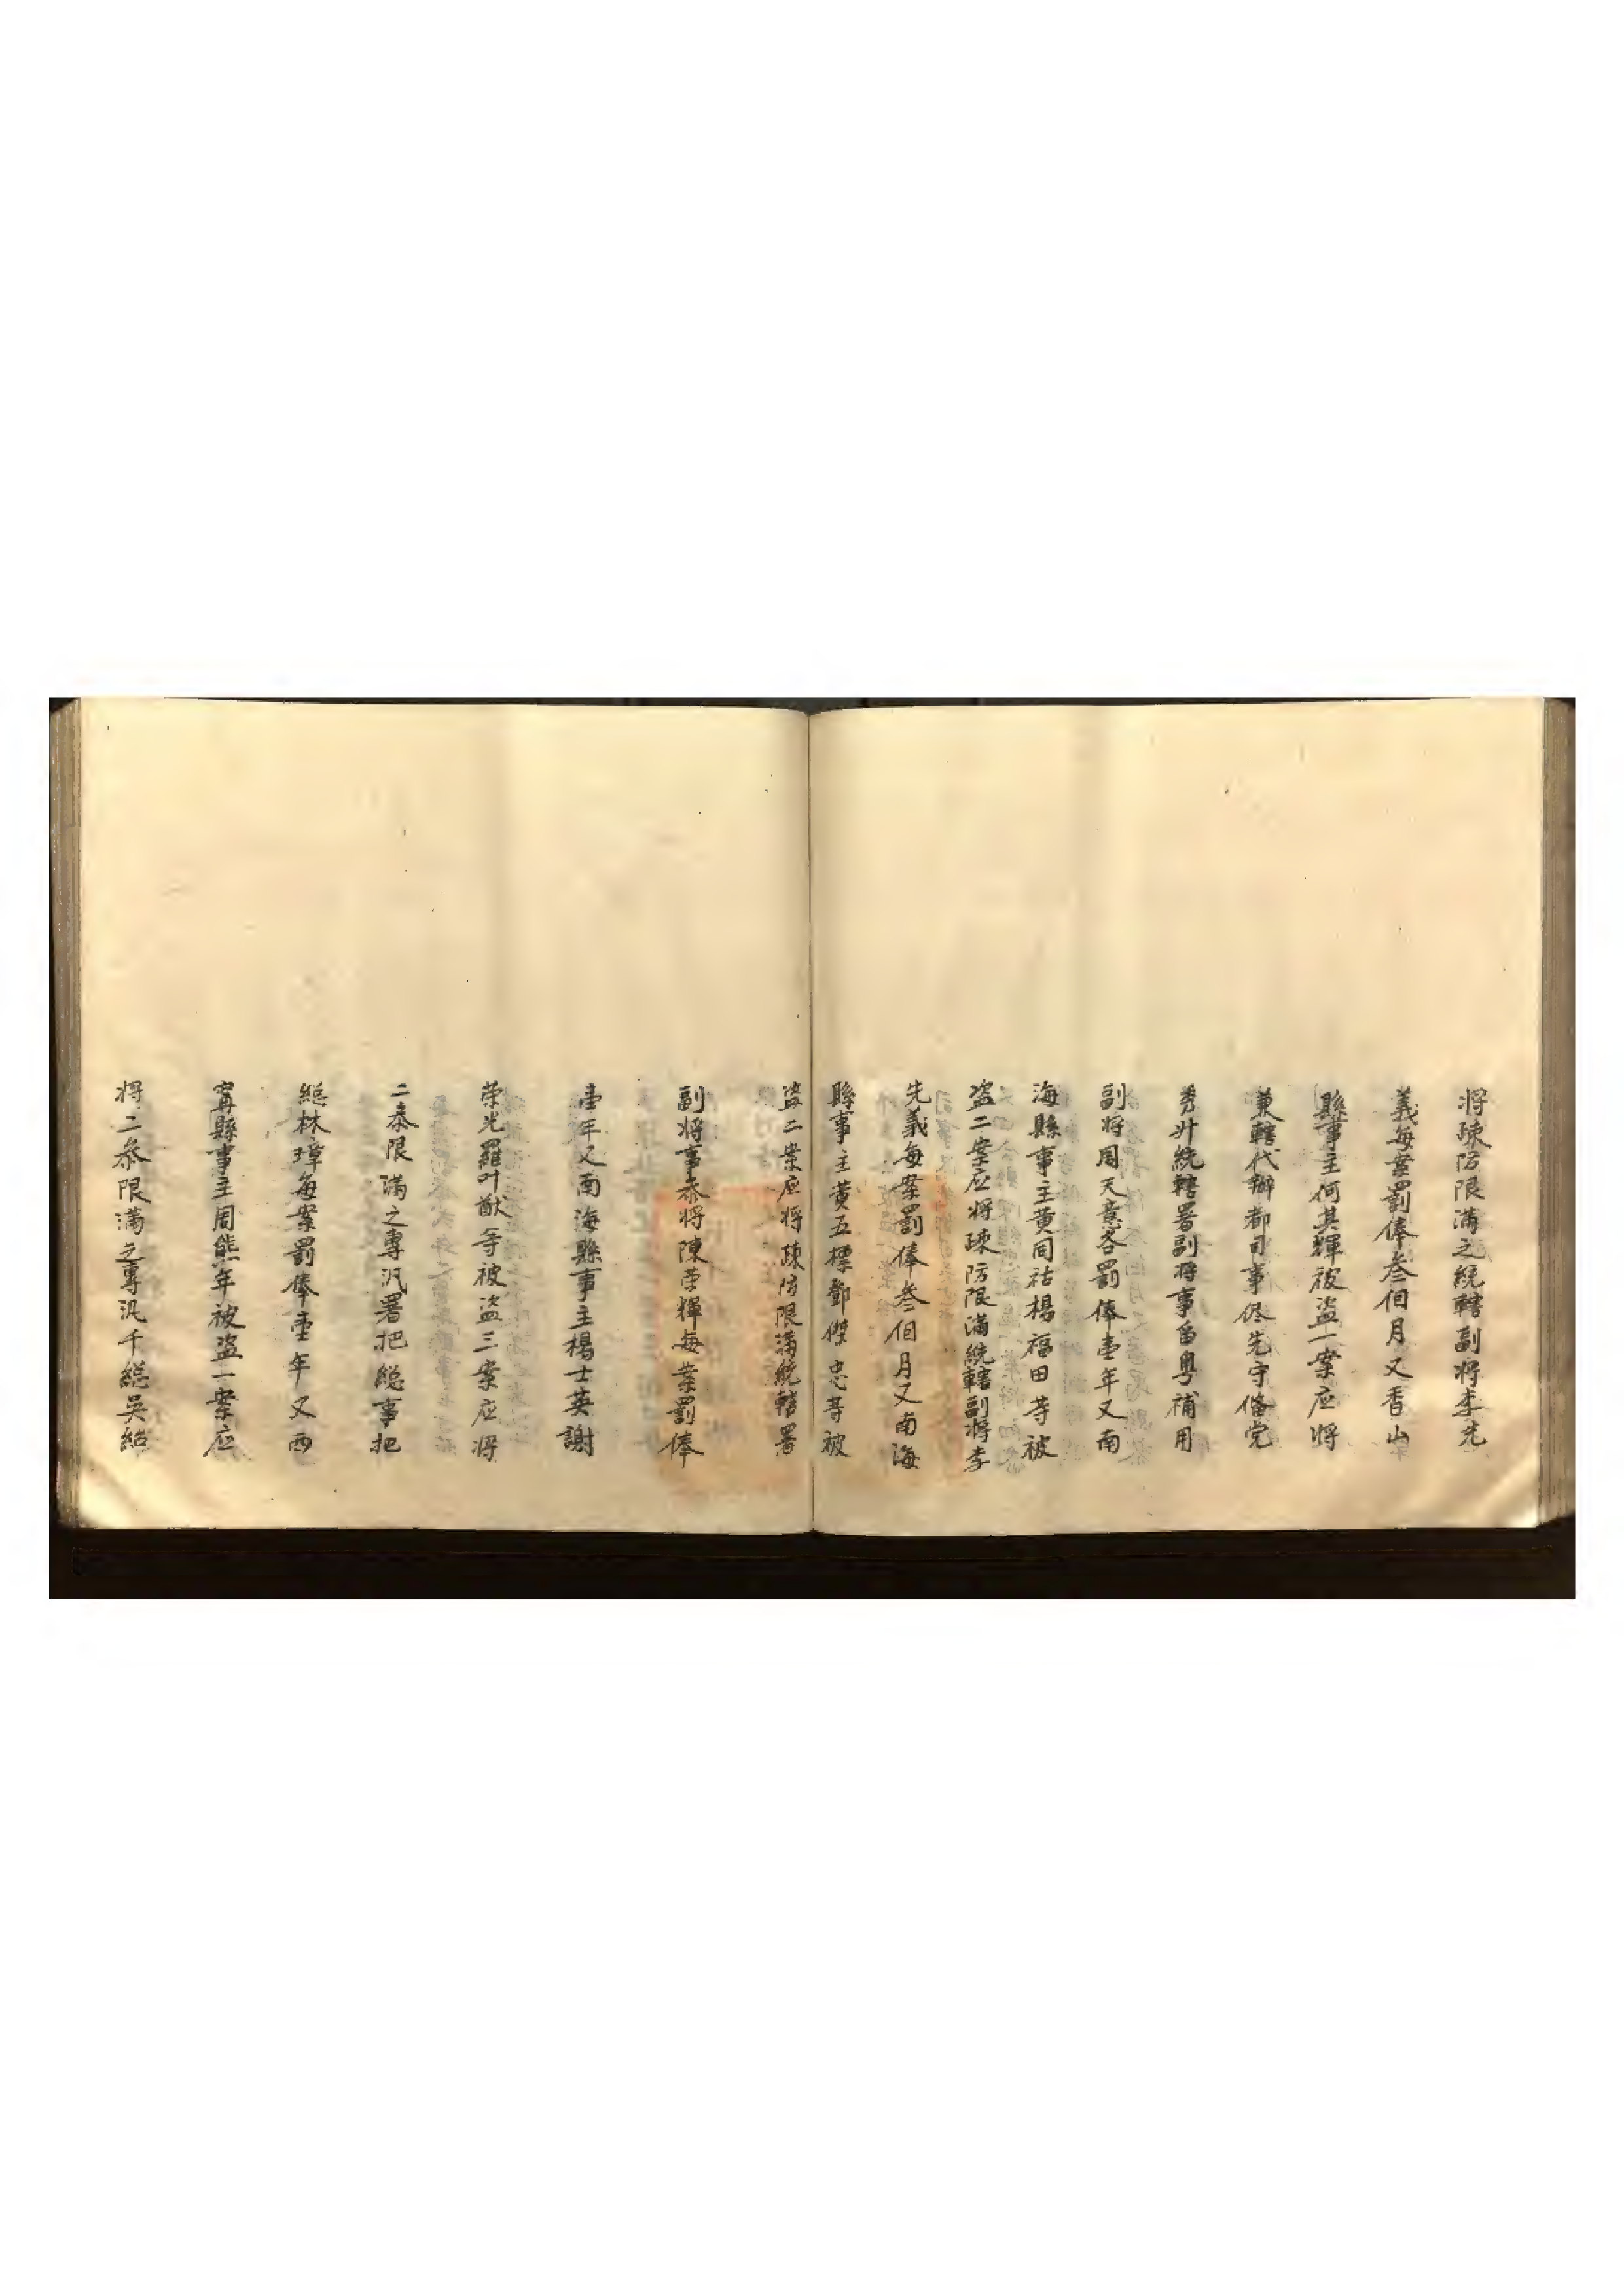 将疎防限滿之統轄副将李先
義每案罰俸叁個月又香山
縣事主何其輝被盗一案应将
兼轄代辦都司事侭先守俻党
秀升統轄署副将事留粤補用
副将周天意各罰俸壹年又南
海縣事主黄同祜楊福田等被
盗二案应将疎防限滿統轄副将李
先義每案罰俸叁個月又南海
縣事主黄五標鄧傑忠等被
盗二案应将疎防限滿統轄署
副将事叅将陳荣輝每案罰俸
壹年又南海縣事主楊士英謝
荣光羅叶猷等被盗三案应将
二叅限滿之專汛署把總事把
總林璋每案罰俸壹年又西
寗縣事主周熊年被盗一案应
将二叅限滿之專汛千總吳紹